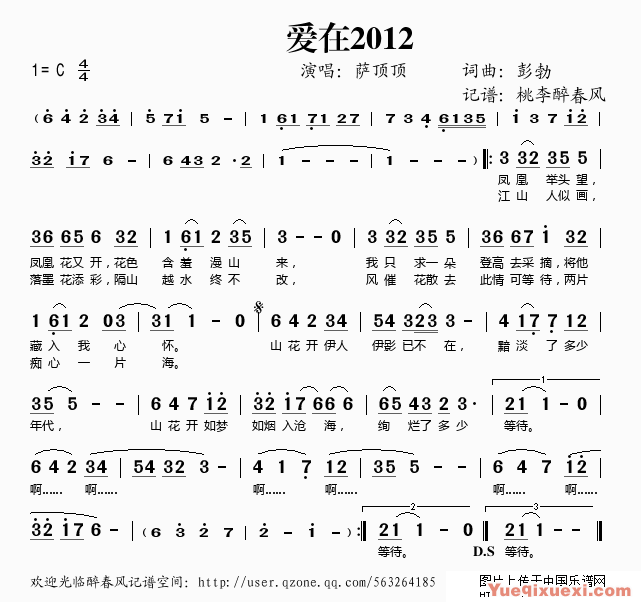 爱在2012
1=C 4/4 演唱: 萨顶顶 词曲: 彭勃
记谱: 桃李醉春风
(6 4 2 34 | 5 71 5 - | 1 61 71 27 | 7 3 4 6135 | 1 37 12
32 17 6 - | 6 43 2·2 | 1 - - - | 1 - - - ) ‖: 3 32 35 5
凤凰 举头望,
江山 人似画,
36 65 6 32 | 1 61 2 35 | 3 - - 0 | 3 32 35 5 | 36 65 1 65
凤凰花又开,花色 含羞 漫山 来, 我只 求一朵 登高去采摘,将他
落墨花添彩,隔山 越水 终不 改, 风催 花散去 此情可等待,两片
1 61 2 03 | 31 1 - 0 | 6 42 4 34 | 54 34 323 3 | 4 17 7 24
藏入 我 心 怀。 山花开伊人 伊影已不在, 黯淡 了多少
痴心 一 片 海。
35 5 - - | 6 4 7 12 | 32 17 66 6 | 65 43 2 3· | 21 1 - 0
年代, 山花开如梦 如烟入沧 海, 绚 烂了多少 等待。
6 4 2 34 | 54 32 3 - | 4 1 7 13 | 35 5 - - | 6 4 7 12
啊…… 啊…… 啊…… 啊…… 啊…… 啊……
32 17 6 - | (6 3 2 7 | 2 - 1 - ) :‖ 21 1 - 0 | 21 1 - 0 ‖
等待。 D.S 等待。
欢迎光临醉春风记谱空间: http://user.qzone.qq.com/563264185 图片上传于中国乐谱网
Yueqixuexi.com